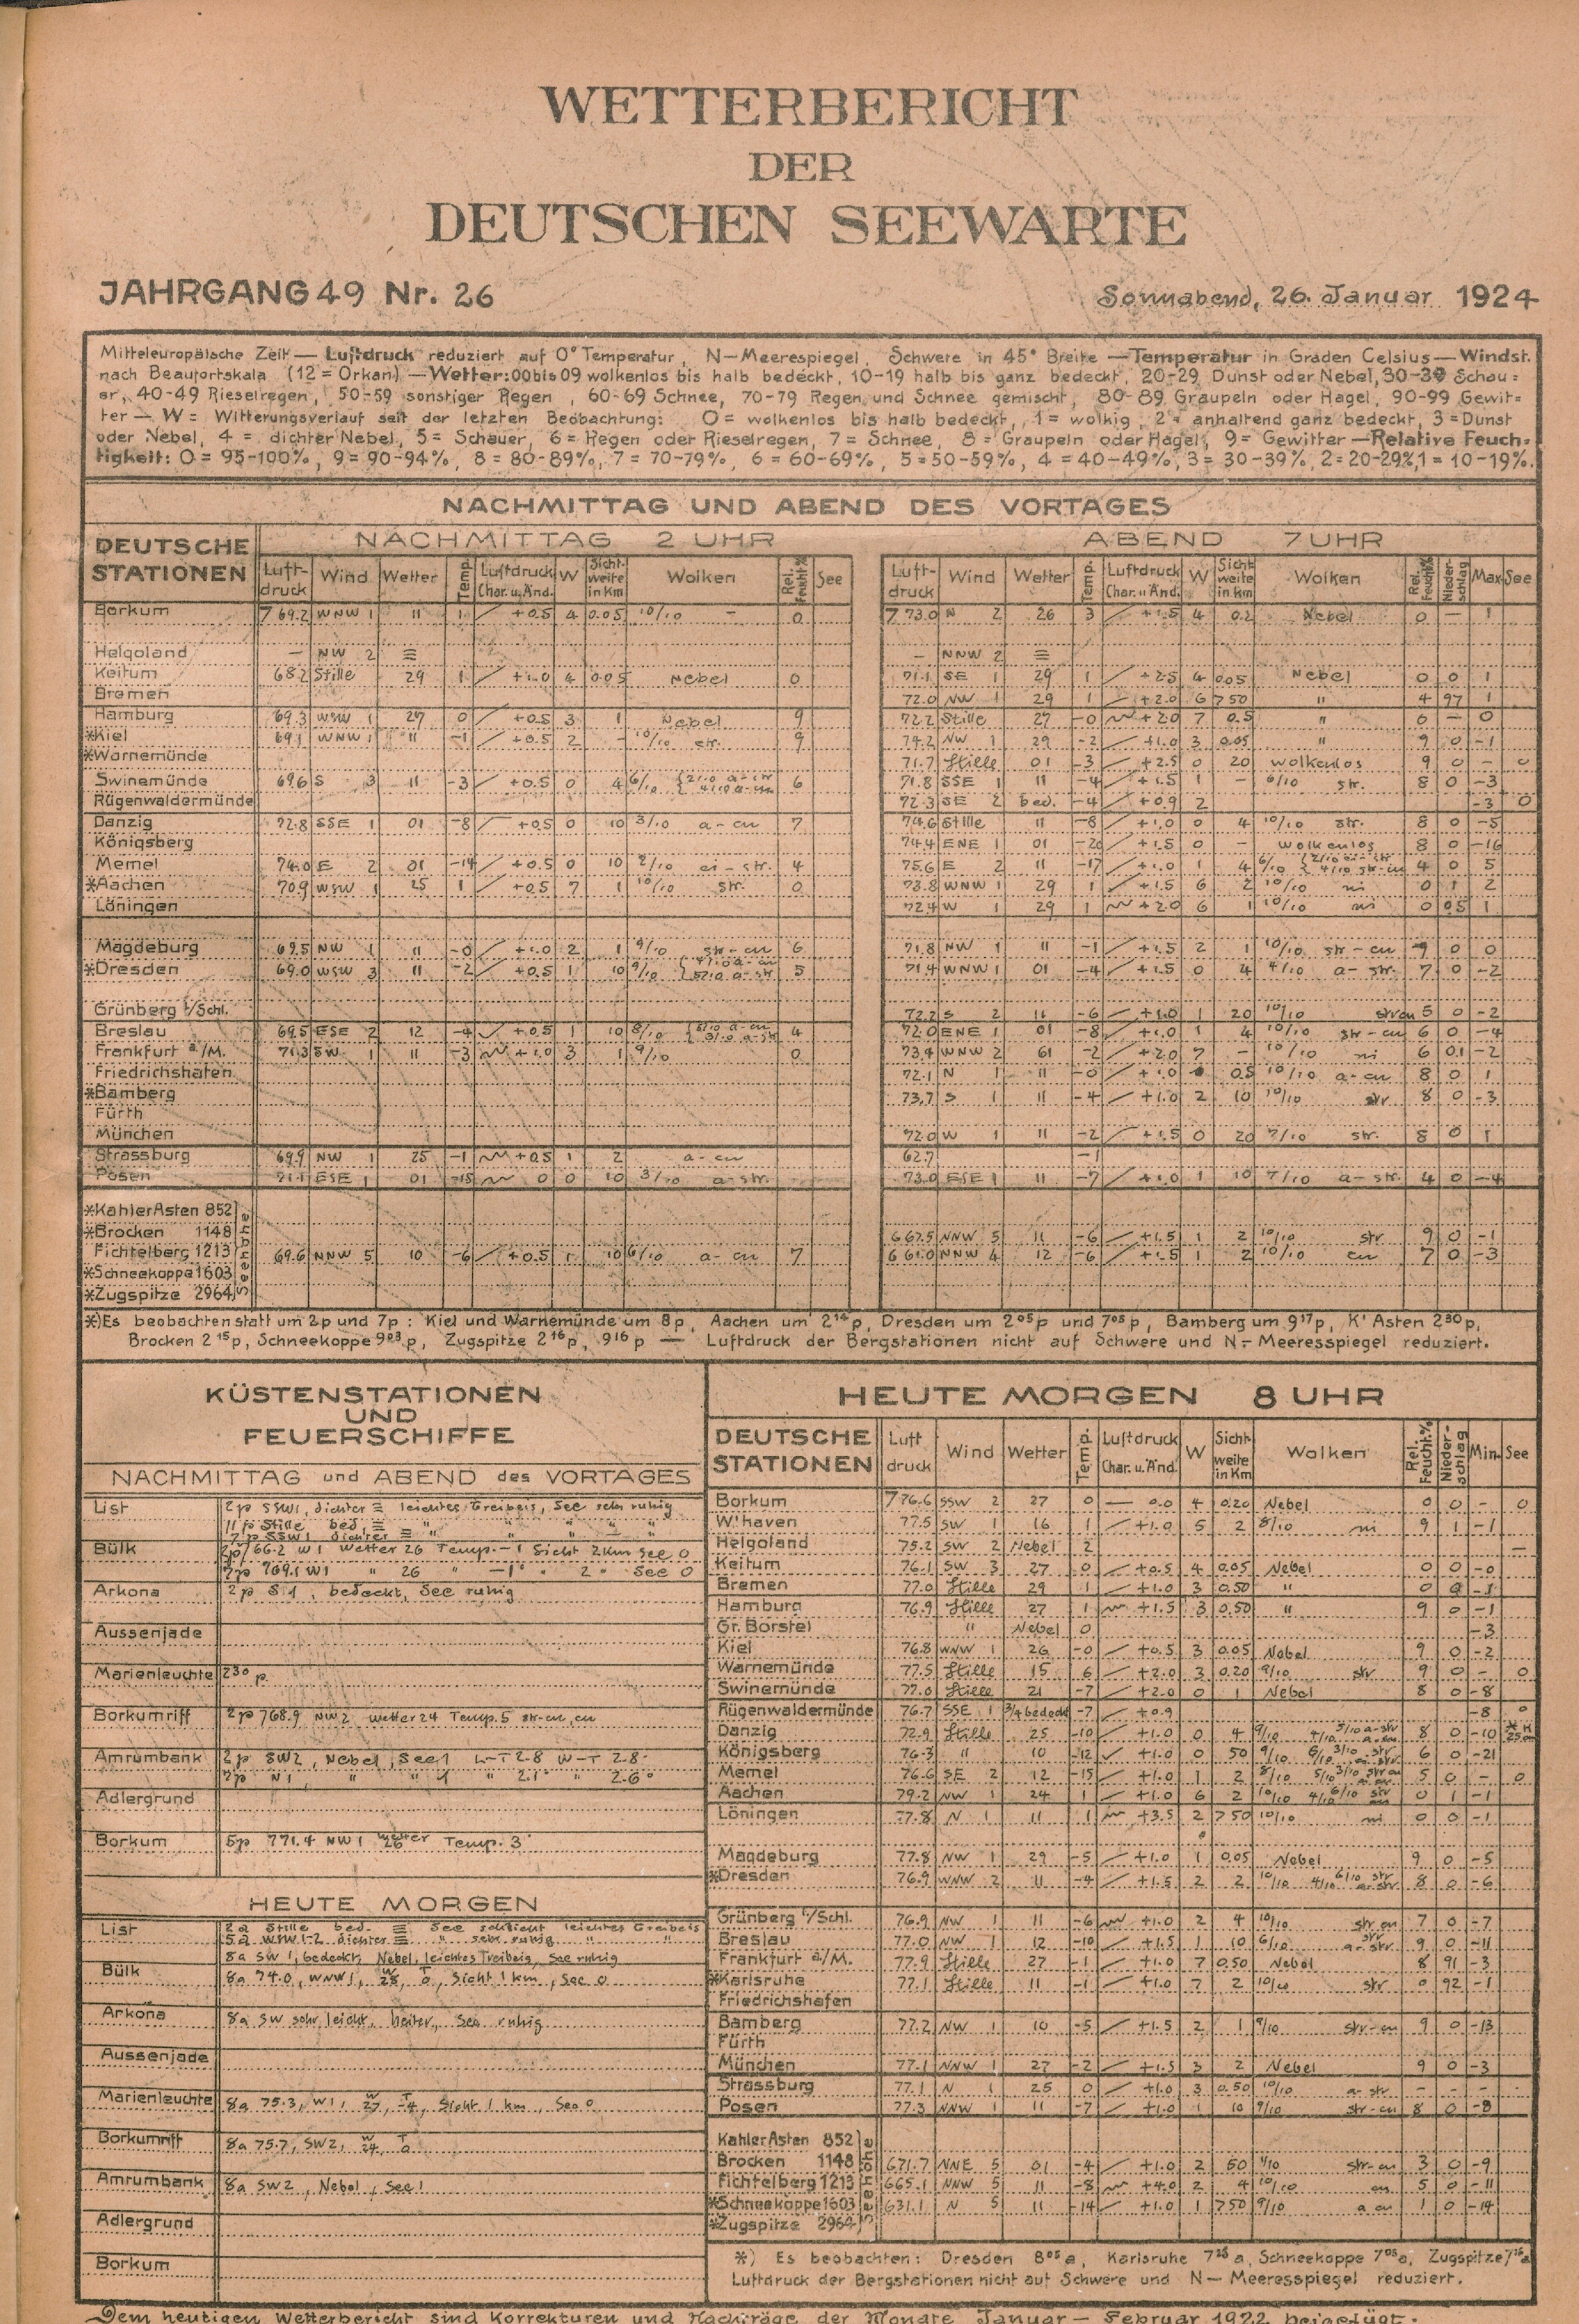 WETTERBERICHT
DER
DEUTSCHEN SEEWARTE
JAHRGANG 49 Nr. 26 Sonnabend, 26. Januar 1924
Mitteleuropäische Zeit — Luftdruck reduziert auf 0° Temperatur, N—Meerespiegel, Schwere in 45° Breite — Temperatur in Graden Celsius — Windst.
nach Beaufortskala (12 = Orkan) — Wetter: 00 bis 09 wolkenlos bis halb bedeckt, 10-19 halb bis ganz bedeckt, 20-29 Dunst oder Nebel, 30-39 Schau=
er, 40-49 Rieselregen, 50-59 sonstiger Regen, 60-69 Schnee, 70-79 Regen und Schnee gemischt, 80-89 Graupeln oder Hagel, 90-99 Gewit=
ter — W = Witterungsverlauf seit der letzten Beobachtung: 0 = wolkenlos bis halb bedeckt, 1 = wolkig, 2 = anhaltend ganz bedeckt, 3 = Dunst
oder Nebel, 4 = dichter Nebel, 5 = Schauer, 6 = Regen oder Rieselregen, 7 = Schnee, 8 = Graupeln oder Hagel, 9 = Gewitter — Relative Feuch-
tigkeit: 0 = 95-100%, 9 = 90-94%, 8 = 80-89%, 7 = 70-79%, 6 = 60-69%, 5 = 50-59%, 4 = 40-49%, 3 = 30-39%, 2 = 20-29%, 1 = 10-19%.
NACHMITTAG UND ABEND DES VORTAGES
DEUTSCHE STATIONEN
NACHMITTAG 2 UHR
ABEND 7 UHR
Luft-druck Wind Wetter Temp. Luftdruck Char. u. Änd. W Sicht-weite in Km Wolken Rel. Feucht.% See
Luft-druck Wind Wetter Temp. Luftdruck Char. u. Änd. W Sicht-weite in Km Wolken Rel. Feucht.% Nieder-schlag Max See
Borkum 769.2 WNW 1 11 1 +0.5 4 0.05 10/10 – 0 773.0 N 2 26 3 +1.5 4 0.2 Nebel 0 — 1
Helgoland — NW 2 ≡ — NNW 2 ≡
Keitum 68.2 Stille 29 1 +1.0 4 0.05 Nebel 0 71.1 SE 1 29 1 +2.5 4 0.05 Nebel 0 0 1
Bremen 72.0 NW 1 29 1 +2.0 6 750 " 4 97 1
Hamburg 69.3 WSW 1 27 0 +0.5 3 1 Nebel 9 72.2 Stille 27 -0 +2.0 7 0.5 " 0 — 0
*Kiel 69.1 WNW 1 11 -1 +0.5 2 – 10/10 str. 9 74.2 NW 1 29 -2 +1.0 3 0.05 " 9 0 -1
*Warnemünde 71.7 Stille 01 -3 +2.5 0 20 wolkenlos 9 0 – 0
Swinemünde 69.6 S 3 11 -3 +0.5 0 4 6/10 6 71.8 SSE 1 11 -4 +1.5 1 – 6/10 str. 8 0 -3
Rügenwaldermünde 72.3 SE 2 bed. -4 +0.9 2 -3 0
Danzig 72.8 SSE 1 01 -8 +0.5 0 10 3/10 a-cu 7 74.6 Stille 11 -8 +1.0 0 4 10/10 str. 8 0 -5
Königsberg 74.4 ENE 1 01 -20 +1.5 0 – wolkenlos 8 0 -16
Memel 74.0 E 2 01 -14 +0.5 0 10 2/10 ci-str. 4 75.6 E 2 11 -17 +1.0 1 4 6/10 4 0 5
*Aachen 70.9 WSW 1 25 1 +0.5 7 1 10/10 str. 0 73.8 WNW 1 29 1 +1.5 6 2 10/10 ni 0 1 2
Löningen 72.4 W 1 29 1 +2.0 6 1 10/10 ni 0 0.5 1
Magdeburg 69.5 NW 1 11 -0 +1.0 2 1 9/10 str-cu 6 71.8 NW 1 11 -1 +1.5 2 1 10/10 str-cu 9 0 0
*Dresden 69.0 WSW 3 11 -2 +0.5 1 10 9/10 5 71.4 WNW 1 01 -4 +1.5 0 4 4/10 a-str. 7 0 -2
Grünberg i/Schl. 72.2 S 2 11 -6 +1.0 1 20 10/10 strcu 5 0 -2
Breslau 69.5 ESE 2 12 -4 +0.5 1 10 8/10 4 72.0 ENE 1 01 -8 +1.0 1 4 10/10 str-cu 6 0 -4
Frankfurt a/M. 71.3 SW 1 11 -3 +1.0 3 1 9/10 0 73.4 WNW 2 61 -2 +2.0 7 – 10/10 ni 6 0.1 -2
Friedrichshafen 72.1 N 1 11 -0 +1.0 0.5 10/10 a-cu 8 0 1
*Bamberg 73.7 S 1 11 -4 +1.0 2 10 10/10 str 8 0 -3
Fürth
München 72.0 W 1 11 -2 +1.5 0 20 7/10 str. 8 0 1
Strassburg 69.9 NW 1 25 -1 +0.5 1 2 a-cu 62.7 -1
Posen 71.1 ESE 1 01 -15 0 0 10 3/10 a-str. 73.0 ESE 1 11 -7 +1.0 1 10 7/10 a-str. 4 0 -4
*Kahler Asten 852 Seehöhe
*Brocken 1148 667.5 WNW 5 11 -6 +1.5 1 2 10/10 str 9 0 -1
Fichtelberg 1213 69.6 NNW 5 10 -6 +0.5 1 10 6/10 a-cu 7 661.0 NNW 4 12 -6 +1.5 1 2 10/10 cu 7 0 -3
*Schneekoppe 1603
*Zugspitze 2964
*) Es beobachten statt um 2p und 7p: Kiel und Warnemünde um 8p, Aachen um 2¹⁴p, Dresden um 2⁰⁵p und 7⁰⁵p, Bamberg um 9¹⁷p, K' Asten 2³⁰p,
Brocken 2¹⁵p, Schneekoppe 9⁰³p, Zugspitze 2¹⁶p, 9¹⁶p — Luftdruck der Bergstationen nicht auf Schwere und N—Meeresspiegel reduziert.
KÜSTENSTATIONEN
UND
FEUERSCHIFFE
NACHMITTAG und ABEND des VORTAGES
List 2p SSW1, dichter ≡ leichtes Treibeis, See sehr ruhig
11p Stille bed. ≡ " " " " "
7p SSW1 dichter ≡ " " " — "
Bülk 2p 766.2 W1 Wetter 26 Temp. -1 Sicht 2km See 0
7p 769.1 W1 " 26 " -1° " 2 " See 0
Arkona 2p S1, bedeckt, See ruhig
Aussenjade
Marienleuchte 2³⁰ p
Borkumriff 2p 768.9 NW2 Wetter 24 Temp. 5 str-cu, cu
Amrumbank 2p SW2, Nebel, See 1 L-T 2.8 W-T 2.8°
7p N1, " " 1 " 2.1° " 2.6°
Adlergrund
Borkum 5p 771.4 NW1 Wetter 26 Temp. 3°
HEUTE MORGEN
List 2a Stille bed. ≡ See schlicht leichtes Treibeis
5a WSW 1-2 dichter ≡ " sehr ruhig " "
8a SW 1, bedeckt, Nebel, leichtes Treibeis, See ruhig
Bülk 8a 74.0, WNW1, W 28, T 0, Sicht 1 km, See 0
Arkona 8a SW sehr leicht, heiter, See ruhig
Aussenjade
Marienleuchte 8a 75.3, W1, W 27, T -4, Sicht 1 km, See 0
Borkumriff 8a 75.7, SW2, W 24, T 0
Amrumbank 8a SW2, Nebel, See 1
Adlergrund
Borkum
HEUTE MORGEN 8 UHR
DEUTSCHE STATIONEN Luftdruck Wind Wetter Temp. Luftdruck Char. u. Änd. W Sicht-weite in Km Wolken Rel. Feucht.% Nieder-schlag Min. See
Borkum 776.6 SSW 2 27 0 — 0.0 4 0.20 Nebel 0 0 – 0
W'haven 77.5 SW 1 16 1 +1.0 5 2 8/10 ni 9 1 -1
Helgoland 75.2 SW 2 Nebel 2 —
Keitum 76.1 SW 3 27 0 +0.5 4 0.05 Nebel 0 0 -0
Bremen 77.0 Stille 29 1 +1.0 3 0.50 " 0 0 -1
Hamburg 76.9 Stille 27 1 +1.5 3 0.50 " 9 0 -1
Gr. Borstel " Nebel 0 -3
Kiel 76.8 WNW 1 26 -0 +0.5 3 0.05 Nebel 9 0 -2
Warnemünde 77.5 Stille 15 6 +2.0 3 0.20 9/10 str 9 0 – 0
Swinemünde 77.0 Stille 21 -7 +2.0 0 1 Nebel 8 0 -8
Rügenwaldermünde 76.7 SSE 1 3/4 bedeckt -7 +0.9 -8 0
Danzig 72.9 Stille 25 -10 +1.0 0 4 9/10 8 0 -10
Königsberg 76.3 " 10 -12 +1.0 0 50 9/10 6 0 -21
Memel 76.6 SE 2 12 -15 +1.0 1 2 8/10 5 0 – 0
Aachen 79.2 NW 1 24 1 +1.0 6 2 10/10 0 1 -1
Löningen 77.8 N 1 11 1 +3.5 2 750 10/10 ni 0 0 -1
Magdeburg 77.8 NW 1 29 -5 +1.0 1 0.05 Nebel 9 0 -5
*Dresden 76.9 WNW 2 11 -4 +1.5 2 2 10/10 8 0 -6
Grünberg i/Schl. 76.9 NW 1 11 -6 +1.0 2 4 10/10 str cu 7 0 -7
Breslau 77.0 NW 1 12 -10 +1.5 1 10 6/10 9 0 -11
Frankfurt a/M. 77.9 Stille 27 -1 +1.0 7 0.50 Nebel 8 91 -3
*Karlsruhe 77.1 Stille 11 -1 +1.0 7 2 10/10 str 0 92 -1
Friedrichshafen
Bamberg 77.2 NW 1 10 -5 +1.5 2 1 9/10 str-cu 9 0 -13
Fürth
München 77.1 NNW 1 27 -2 +1.5 3 2 Nebel 9 0 -3
Strassburg 77.1 N 1 25 0 +1.0 3 0.50 10/10 a-str – – –
Posen 77.3 NNW 1 11 -7 +1.0 1 10 9/10 str-cu 8 0 -8
Kahler Asten 852 Seehöhe
Brocken 1148 671.7 NNE 5 01 -4 +1.0 2 50 1/10 str-cu 3 0 -9
Fichtelberg 1213 665.1 NNW 5 11 -8 +4.0 2 4 10/10 cu 5 0 -11
*Schneekoppe 1603 631.1 N 5 11 -14 +1.0 1 750 9/10 a cu 1 0 -14
*Zugspitze 2964
*) Es beobachten: Dresden 8⁰⁵a, Karlsruhe 7²⁸a, Schneekoppe 7⁰⁵a, Zugspitze
Luftdruck der Bergstationen nicht auf Schwere und N—Meeresspiegel reduziert.
Dem heutigen Wetterbericht sind Korrekturen und Nachträge der Monate Januar — Februar 1922 beigefügt.